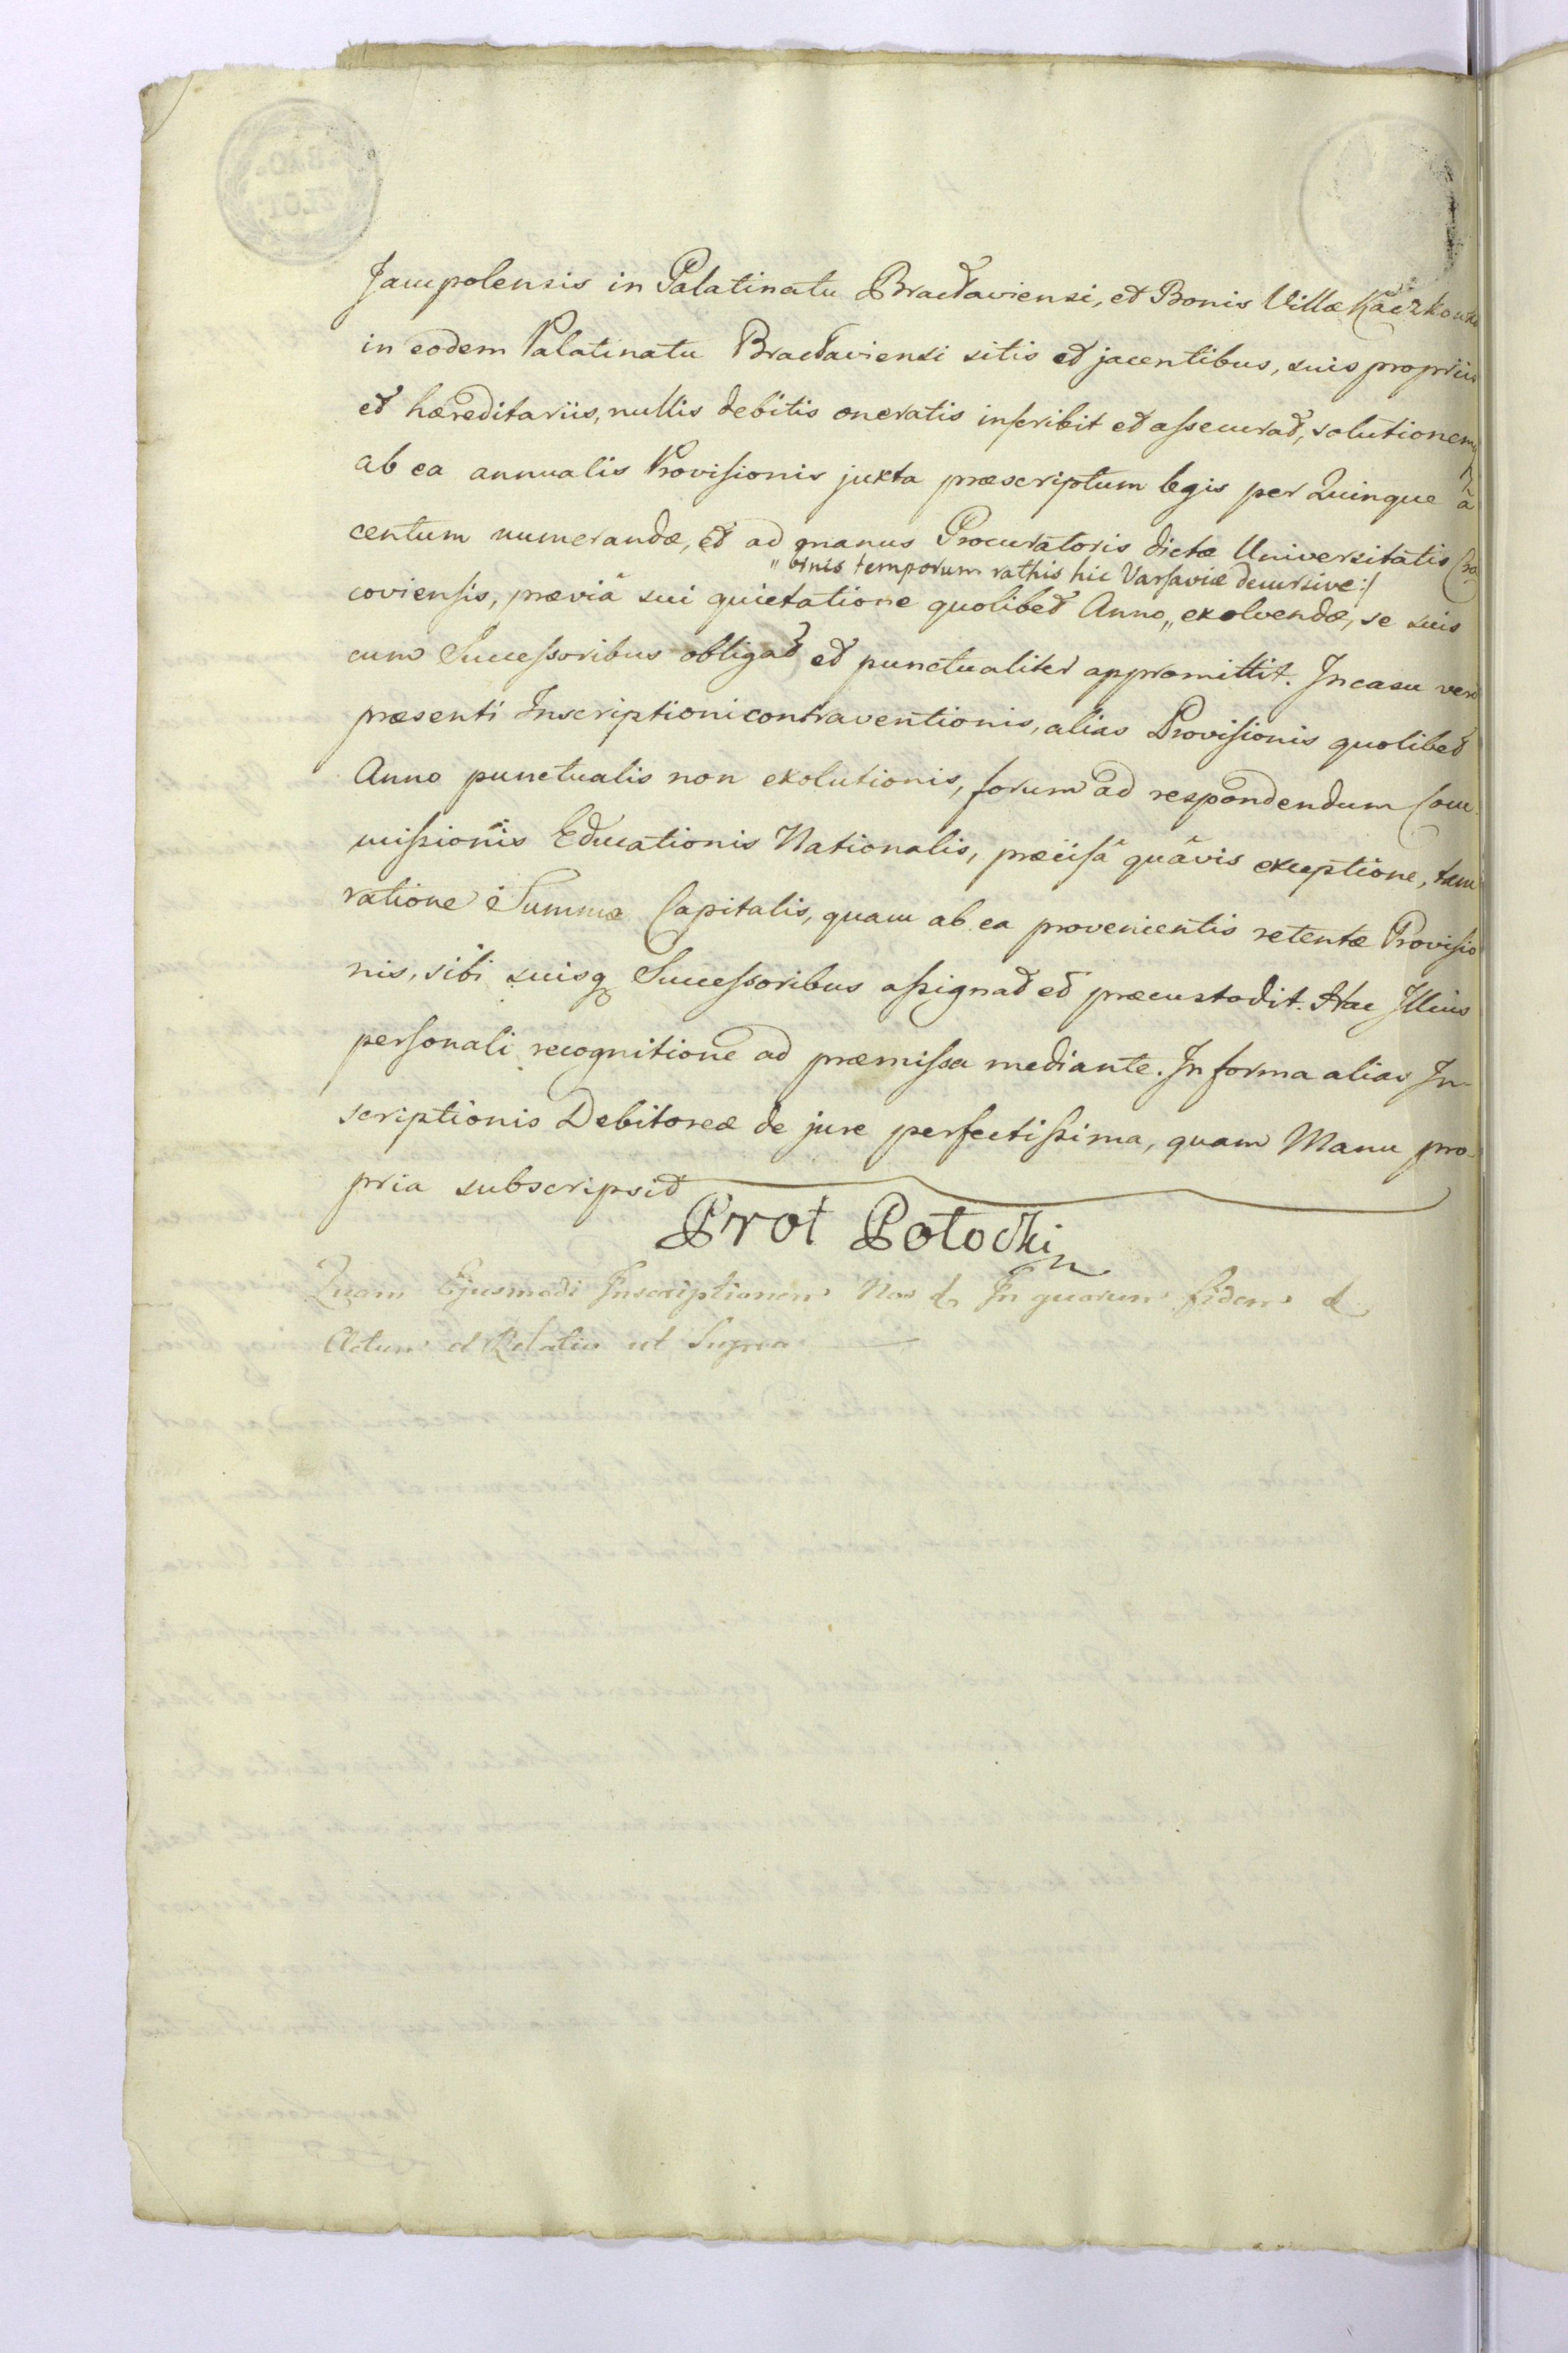 Jampolensis in Palatinatu Bracłaviensi, et Bonis Villæ Kaczkowka
in eodem Palatinatu Bracłaviensi sitis et jacentibus, suis propriis
et hæreditariis, nullis debitis oneratis inscribit et assecurat, solutionemq
ab ea annualis Provisionis juxta præscriptum legis per Quinque à
centum numerandæ, et ad manus Procuratoris dictæ Universitatis Cra
„ binis temporum rathis hic Varsaviæ decursive :/
coviensis, præviâ sui quietatione quolibet Anno „ exolvendæ, se suis
cum Successoribus obligat et punctualiter appromittit. In casu vero
præsenti Inscriptioni contraventionis, alias Provisionis quolibet
Anno punctualis non exolutionis, forum ad respondendum Com
missionis Educationis Nationalis, præcisâ quâvis exceptione, tam
ratione Summæ Capitalis, quam ab ea provenientis retentæ Provisio
nis, sibi suisq Successoribus assignat et præcustodit. Hac Illius
personali recognitione ad præmissa mediante. In forma alias In-
scriptionis Debitoreæ de jure perfectissima, quam Manu pro-
pria subscripsit
Prot Potocki
Quam Ejusmodi Inscriptionem Nos & In quorum fidem &
Actum et Relatio ut Supra